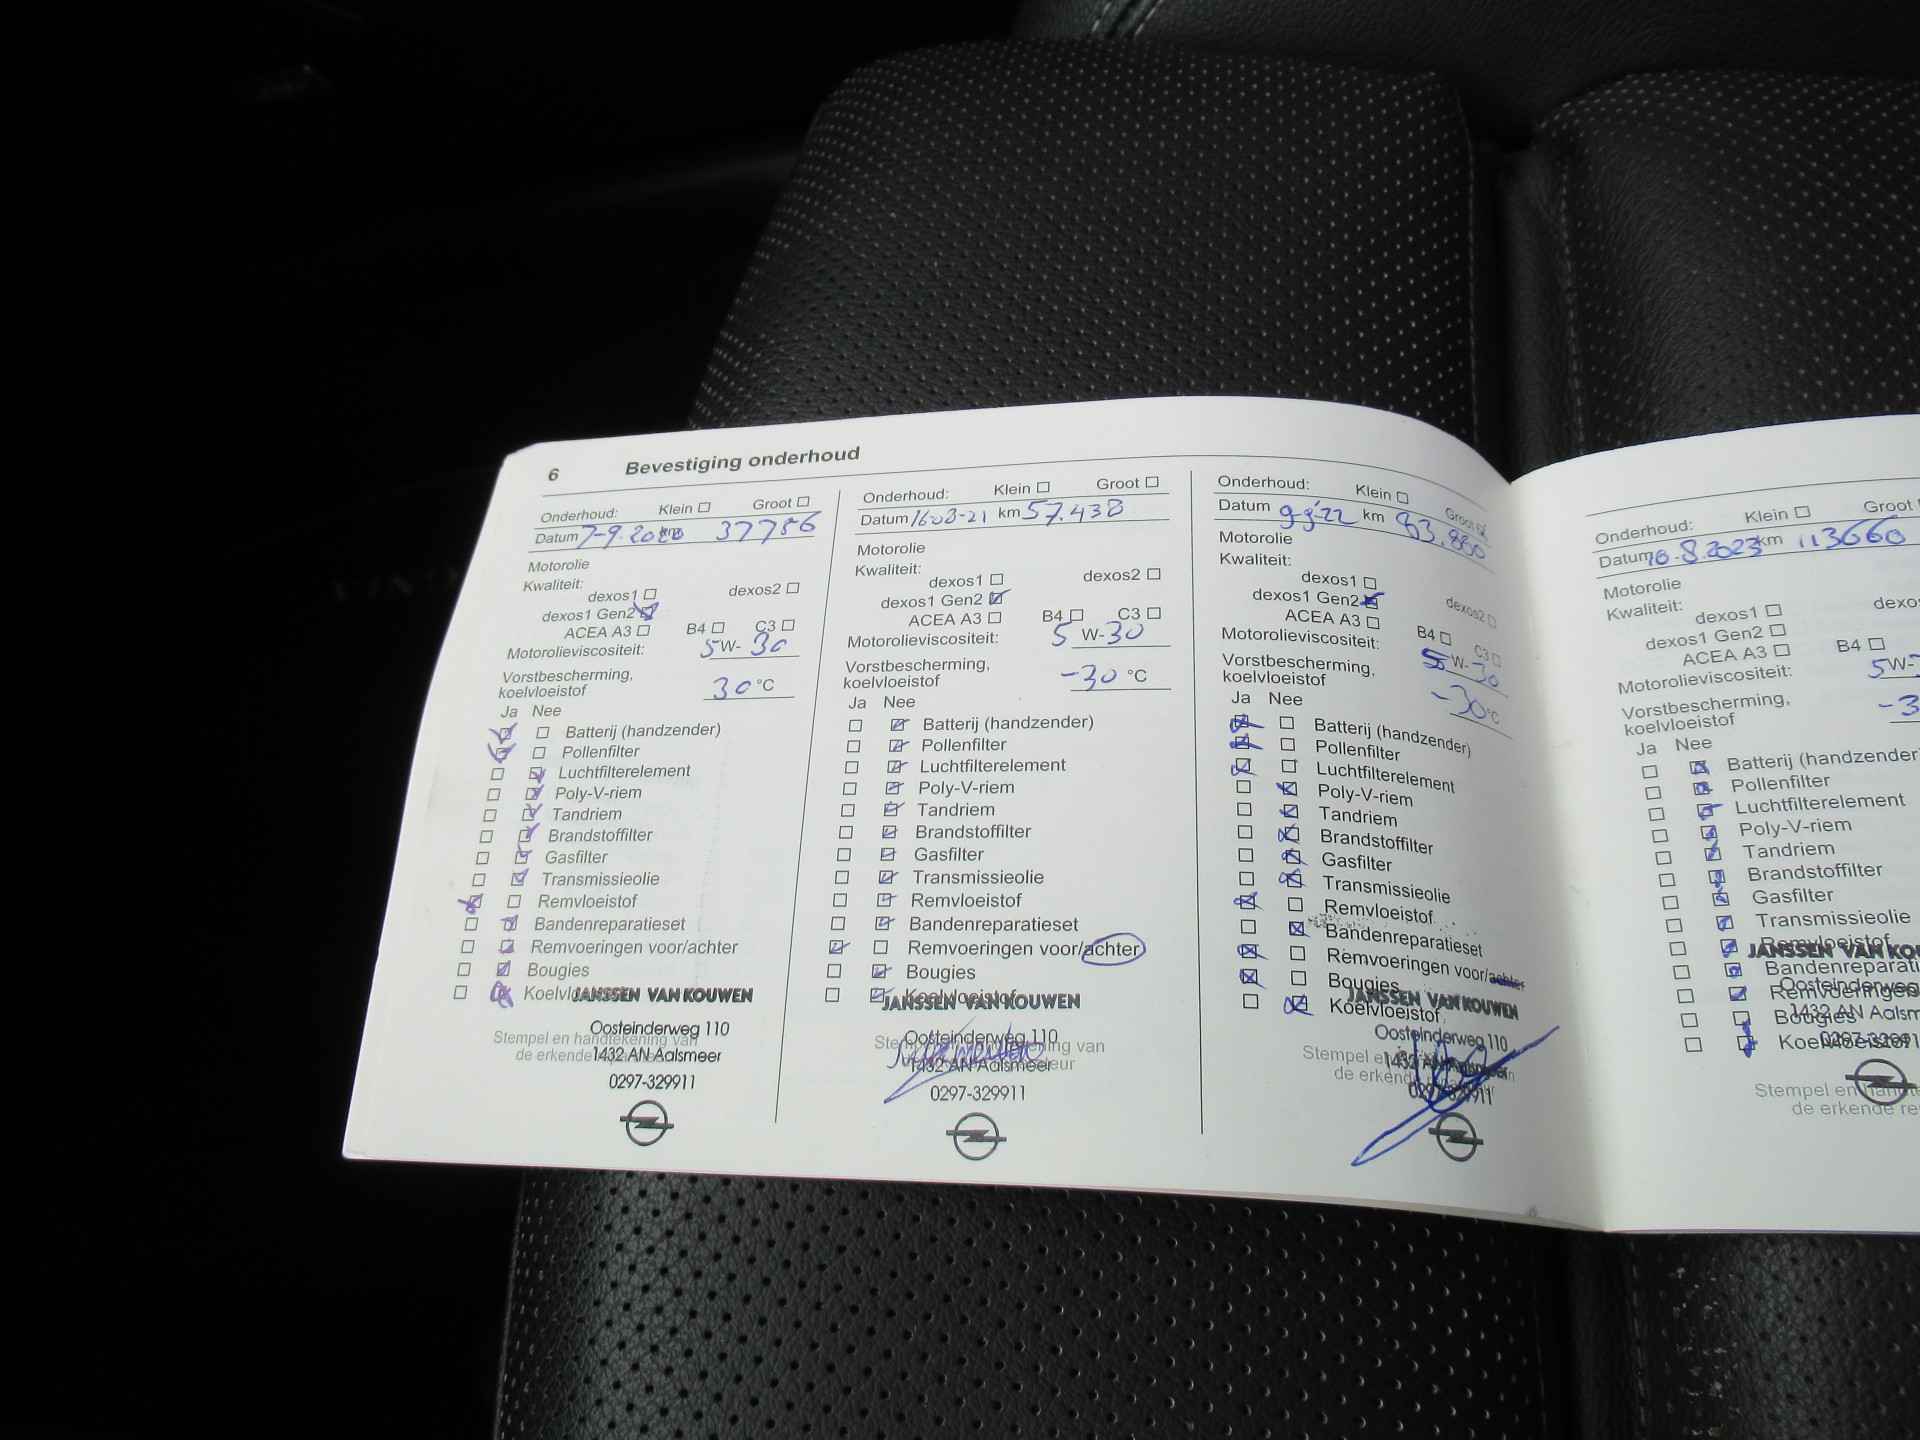 6 Bevestiging onderhoud
Onderhoud: Klein Groot
Datum 7-9-2020 km 37786
Motorolie
Kwaliteit:
dexos1 dexos2
dexos1 Gen2
ACEA A3 B4 C3
Motorolieviscositeit: 5 W- 30
Vorstbescherming,
koelvloeistof 30 °C
Ja Nee
Batterij (handzender)
Pollenfilter
Luchtfilterelement
Poly-V-riem
Tandriem
Brandstoffilter
Gasfilter
Transmissieolie
Remvloeistof
Bandenreparatieset
Remvoeringen voor/achter
Bougies
JANSSEN VAN KOUWEN
Oosteinderweg 110
Stempel en handtekening van
de erkende
1432 AN Aalsmeer
0297-329911
Onderhoud: Klein Groot
Datum 16-08-21 km 57.438
Motorolie
Kwaliteit:
dexos1 dexos2
dexos1 Gen2
ACEA A3 B4 C3
Motorolieviscositeit: 5 W-30
Vorstbescherming,
koelvloeistof -30 °C
Ja Nee
Batterij (handzender)
Pollenfilter
Luchtfilterelement
Poly-V-riem
Tandriem
Brandstoffilter
Gasfilter
Transmissieolie
Remvloeistof
Bandenreparatieset
Remvoeringen voor/achter
Bougies
Koelvloeistof
JANSSEN VAN KOUWEN
Oosteinderweg 110
1432 AN Aalsmeer
0297-329911
Onderhoud: Klein Groot
Datum 9-9-'22 km 83.880
Motorolie
Kwaliteit:
dexos1 dexos2
dexos1 Gen2
ACEA A3 B4 C3
Motorolieviscositeit: 5 W-30
Vorstbescherming,
koelvloeistof -30 °C
Ja Nee
Batterij (handzender)
Pollenfilter
Luchtfilterelement
Poly-V-riem
Tandriem
Brandstoffilter
Gasfilter
Transmissieolie
Remvloeistof
Bandenreparatieset
Remvoeringen voor/achter
Bougies
Koelvloeistof
JANSSEN VAN KOUWEN
Oosteinderweg 110
Stempel en
de erkende
1432 AN Aalsmeer
0297-329911
Onderhoud: Klein Groot
Datum 10-8-2023 km 113660
Motorolie
Kwaliteit:
dexos1
dexos1 Gen2
ACEA A3 B4
Motorolieviscositeit: 5 W-
Vorstbescherming,
koelvloeistof -3
Ja Nee
Batterij (handzender
Pollenfilter
Luchtfilterelement
Poly-V-riem
Tandriem
Brandstoffilter
Gasfilter
Transmissieolie
Remvloeistof
JANSSEN VAN KOU
Bandenreparati
Oosteinderweg
Remvoeringen
1432 AN Aalsm
Bougies
Koelvloeistof
0297-32991
Stempel en handte
de erkende re